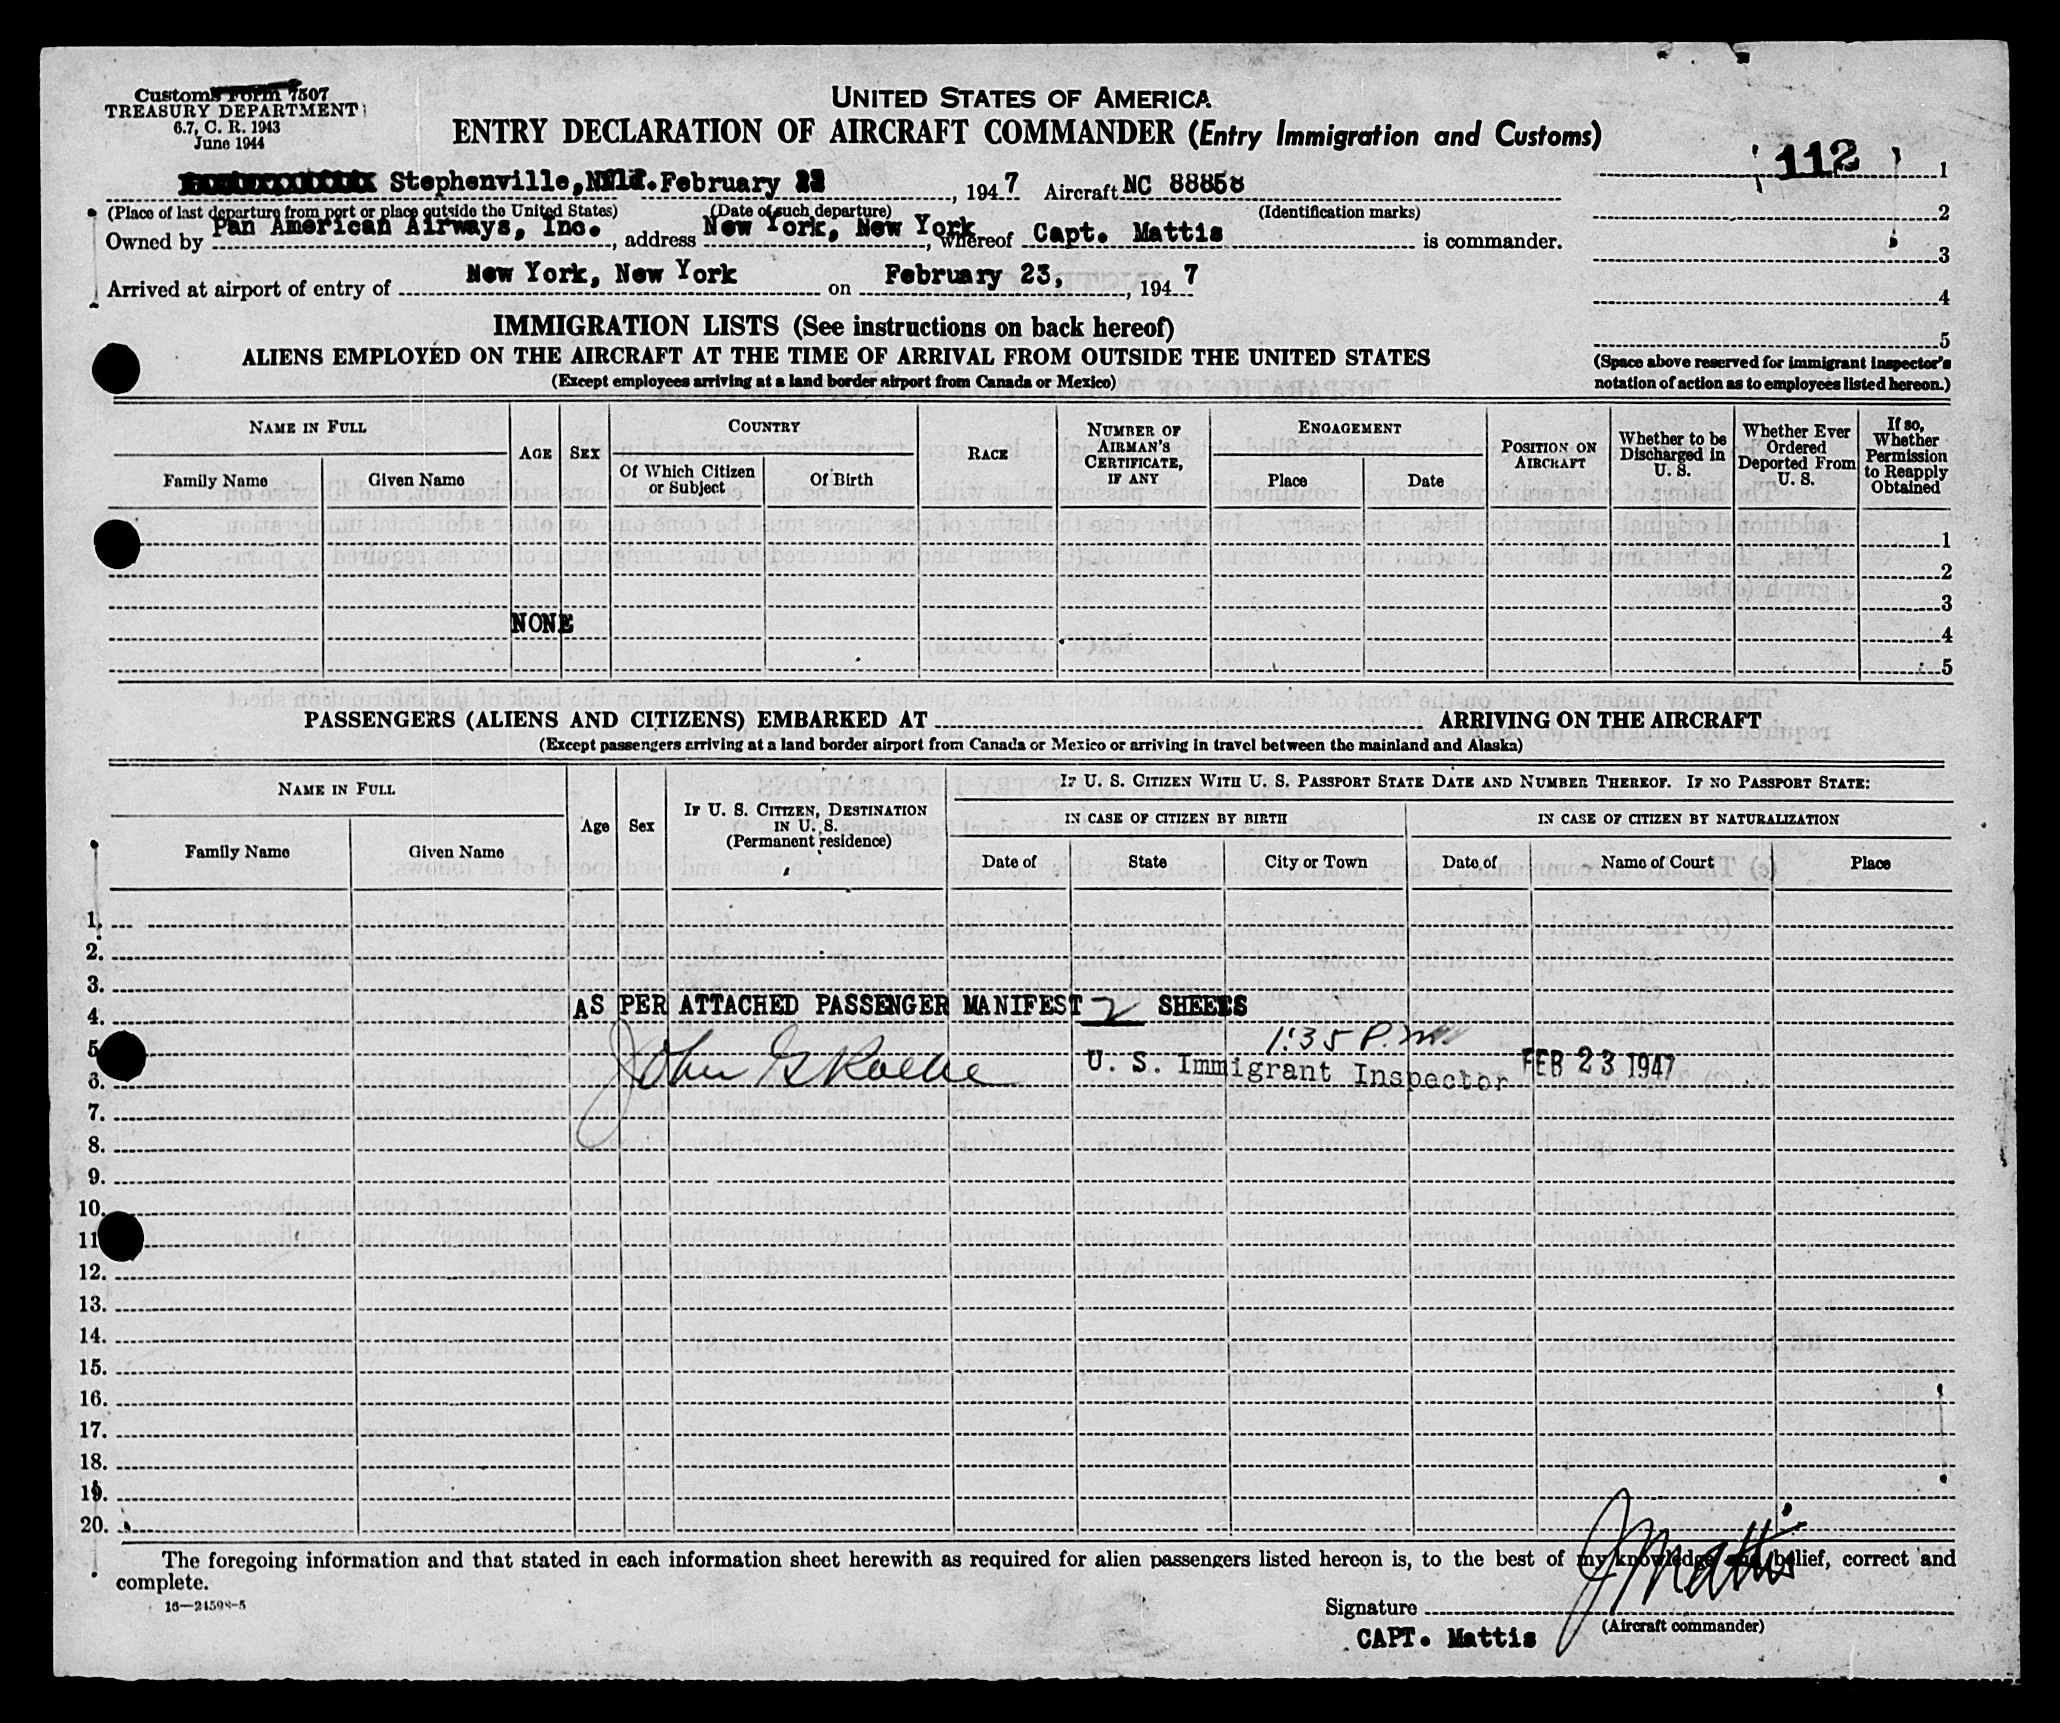 Customs Form 7507
TREASURY DEPARTMENT
6.7, C. R. 1943
June 1944
UNITED STATES OF AMERICA
ENTRY DECLARATION OF AIRCRAFT COMMANDER (Entry Immigration and Customs)
112
1
2
3
4
5
(Space above reserved for immigrant inspector's
notation of action as to employees listed hereon.)
Stephenville, Nfld. February , 1947 Aircraft NC 88858
(Place of last departure from port or place outside the United States) (Date of such departure) (Identification marks)
Owned by Pan American Airways, Inc. , address New York, New York , whereof Capt. Mattis is commander.
Arrived at airport of entry of New York, New York on February 23, , 1947
IMMIGRATION LISTS (See instructions on back hereof)
ALIENS EMPLOYED ON THE AIRCRAFT AT THE TIME OF ARRIVAL FROM OUTSIDE THE UNITED STATES
(Except employees arriving at a land border airport from Canada or Mexico)
NAME IN FULL
Family Name
Given Name
AGE
SEX
COUNTRY
Of Which Citizen
or Subject
Of Birth
RACE
NUMBER OF
AIRMAN'S
CERTIFICATE,
IF ANY
ENGAGEMENT
Place
Date
POSITION ON
AIRCRAFT
Whether to be
Discharged in
U. S.
Whether Ever
Ordered
Deported From
U. S.
If so,
Whether
Permission
to Reapply
Obtained
1
2
3
NONE
4
5
PASSENGERS (ALIENS AND CITIZENS) EMBARKED AT ARRIVING ON THE AIRCRAFT
(Except passengers arriving at a land border airport from Canada or Mexico or arriving in travel between the mainland and Alaska)
NAME IN FULL
Family Name
Given Name
Age
Sex
IF U. S. CITIZEN, DESTINATION
IN U. S.
(Permanent residence)
IF U. S. CITIZEN WITH U. S. PASSPORT STATE DATE AND NUMBER THEREOF. IF NO PASSPORT STATE:
IN CASE OF CITIZEN BY BIRTH
Date of
State
City or Town
IN CASE OF CITIZEN BY NATURALIZATION
Date of
Name of Court
Place
1.
2.
3.
4. AS PER ATTACHED PASSENGER MANIFEST 2 SHEETS
1:35 P.M.
5.
John G U. S. Immigrant Inspector FEB 23 1947
6.
7.
8.
9.
10.
11
12.
13.
14.
15.
16.
17.
18.
19.
20.
The foregoing information and that stated in each information sheet herewith as required for alien passengers listed hereon is, to the best of my knowledge and belief, correct and
complete.
16—24598-5
J Mattis
Signature
(Aircraft commander)
CAPT. Mattis